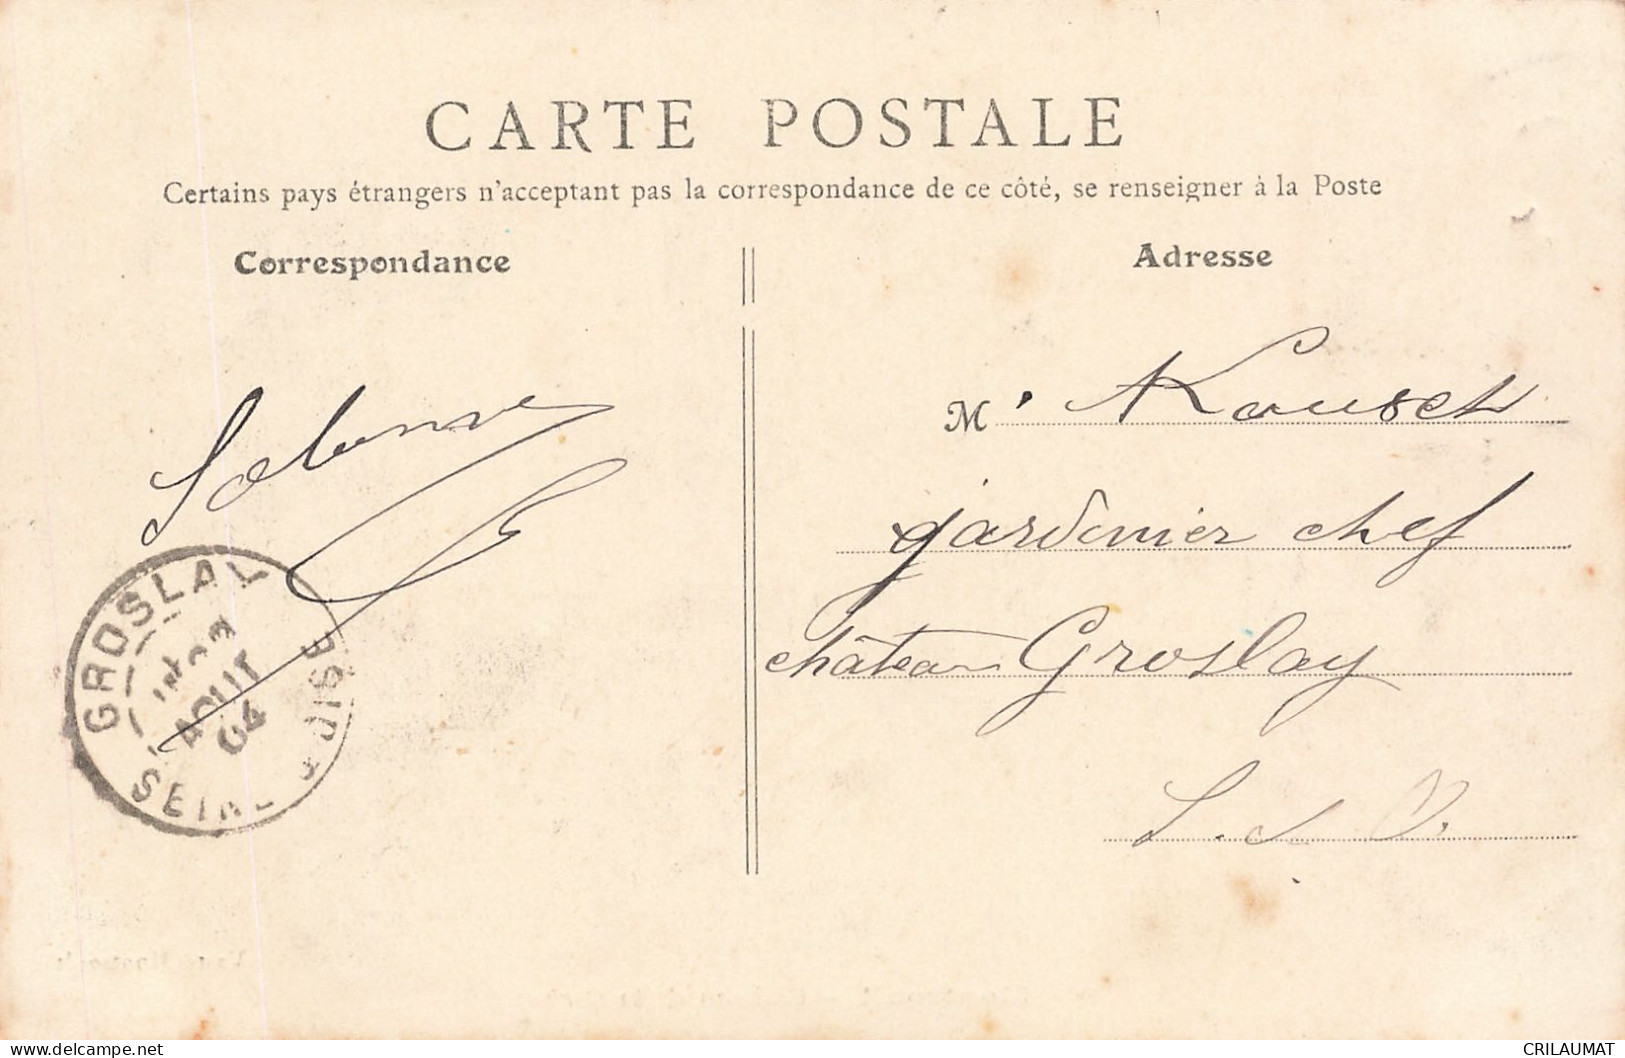 CARTE POSTALE
Certains pays étrangers n'acceptant pas la correspondance de ce côté, se renseigner à la Poste
Correspondance
Adresse
M. Kausch
jardinier chef
château Groslay
S. s O.
GROSLAY
AOUT
04
SEINE & OISE
CRILAUMAT